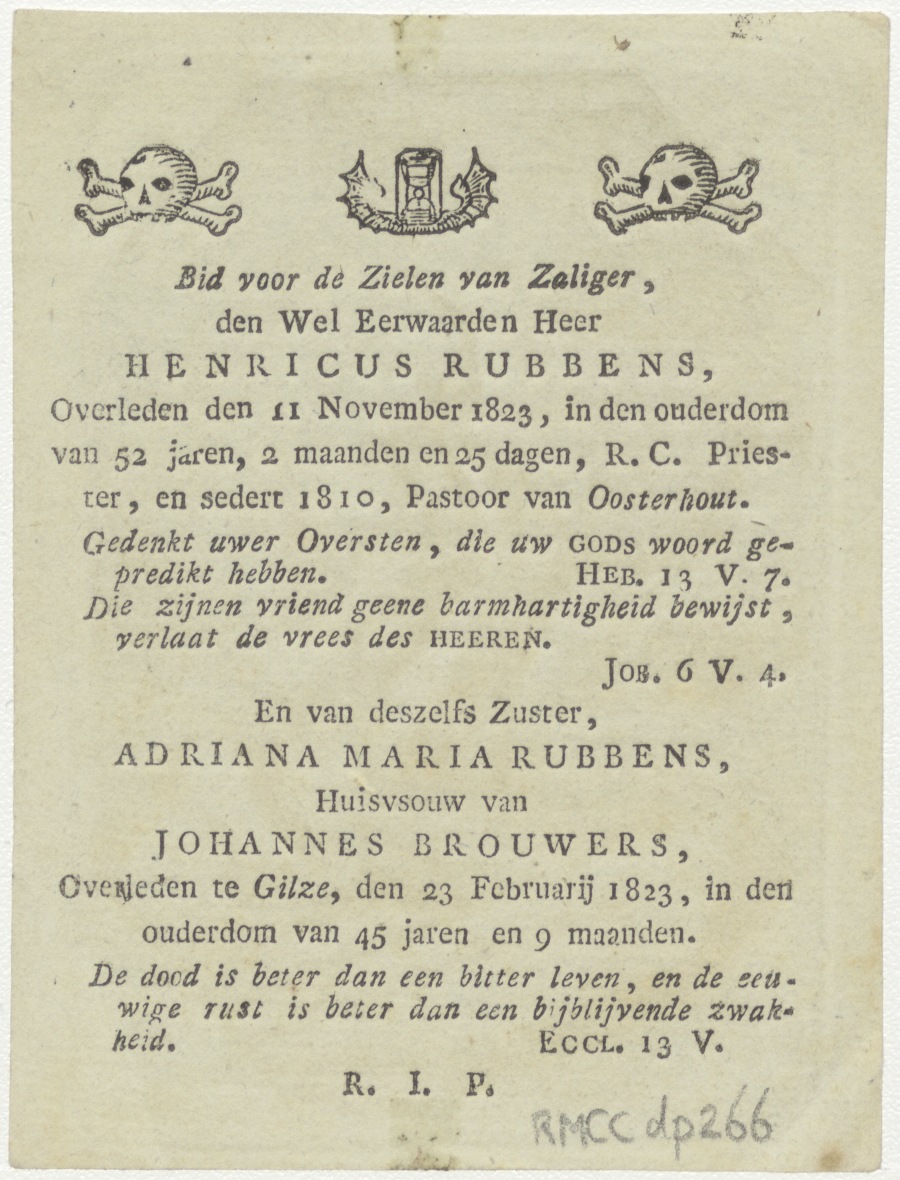 Bid voor de Zielen van Zaliger,
den Wel Eerwaarden Heer
HENRICUS RUBBENS,
Overleden den 11 November 1823, in den ouderdom
van 52 jaren, 2 maanden en 25 dagen, R. C. Pries-
ter, en sedert 1810, Pastoor van Oosterhout.
Gedenkt uwer Oversten, die uw GODS woord ge-
predikt hebben. HEB. 13 V. 7.
Die zijnen vriend geene barmhartigheid bewijst,
verlaat de vrees des HEEREN.
JOB. 6 V. 4.
En van deszelfs Zuster,
ADRIANA MARIA RUBBENS,
Huisvsouw van
JOHANNES BROUWERS,
Overleden te Gilze, den 23 Februarij 1823, in den
ouderdom van 45 jaren en 9 maanden.
De dood is beter dan een bitter leven, en de eeu-
wige rust is beter dan een bijblijvende zwak-
heid. ECCL. 13 V.
R. I. P.
RMCC dp266